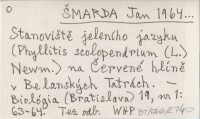 O
ŠMARDA Jan 1964...
Stanoviště jeleního jazyku
(Phyllitis scolopendrium (L.)
Newm.) na Červené hlíně
v Belanských Tatrách.
Biológia (Bratislava) 19, no 1:
63-64. Též odb. WHP